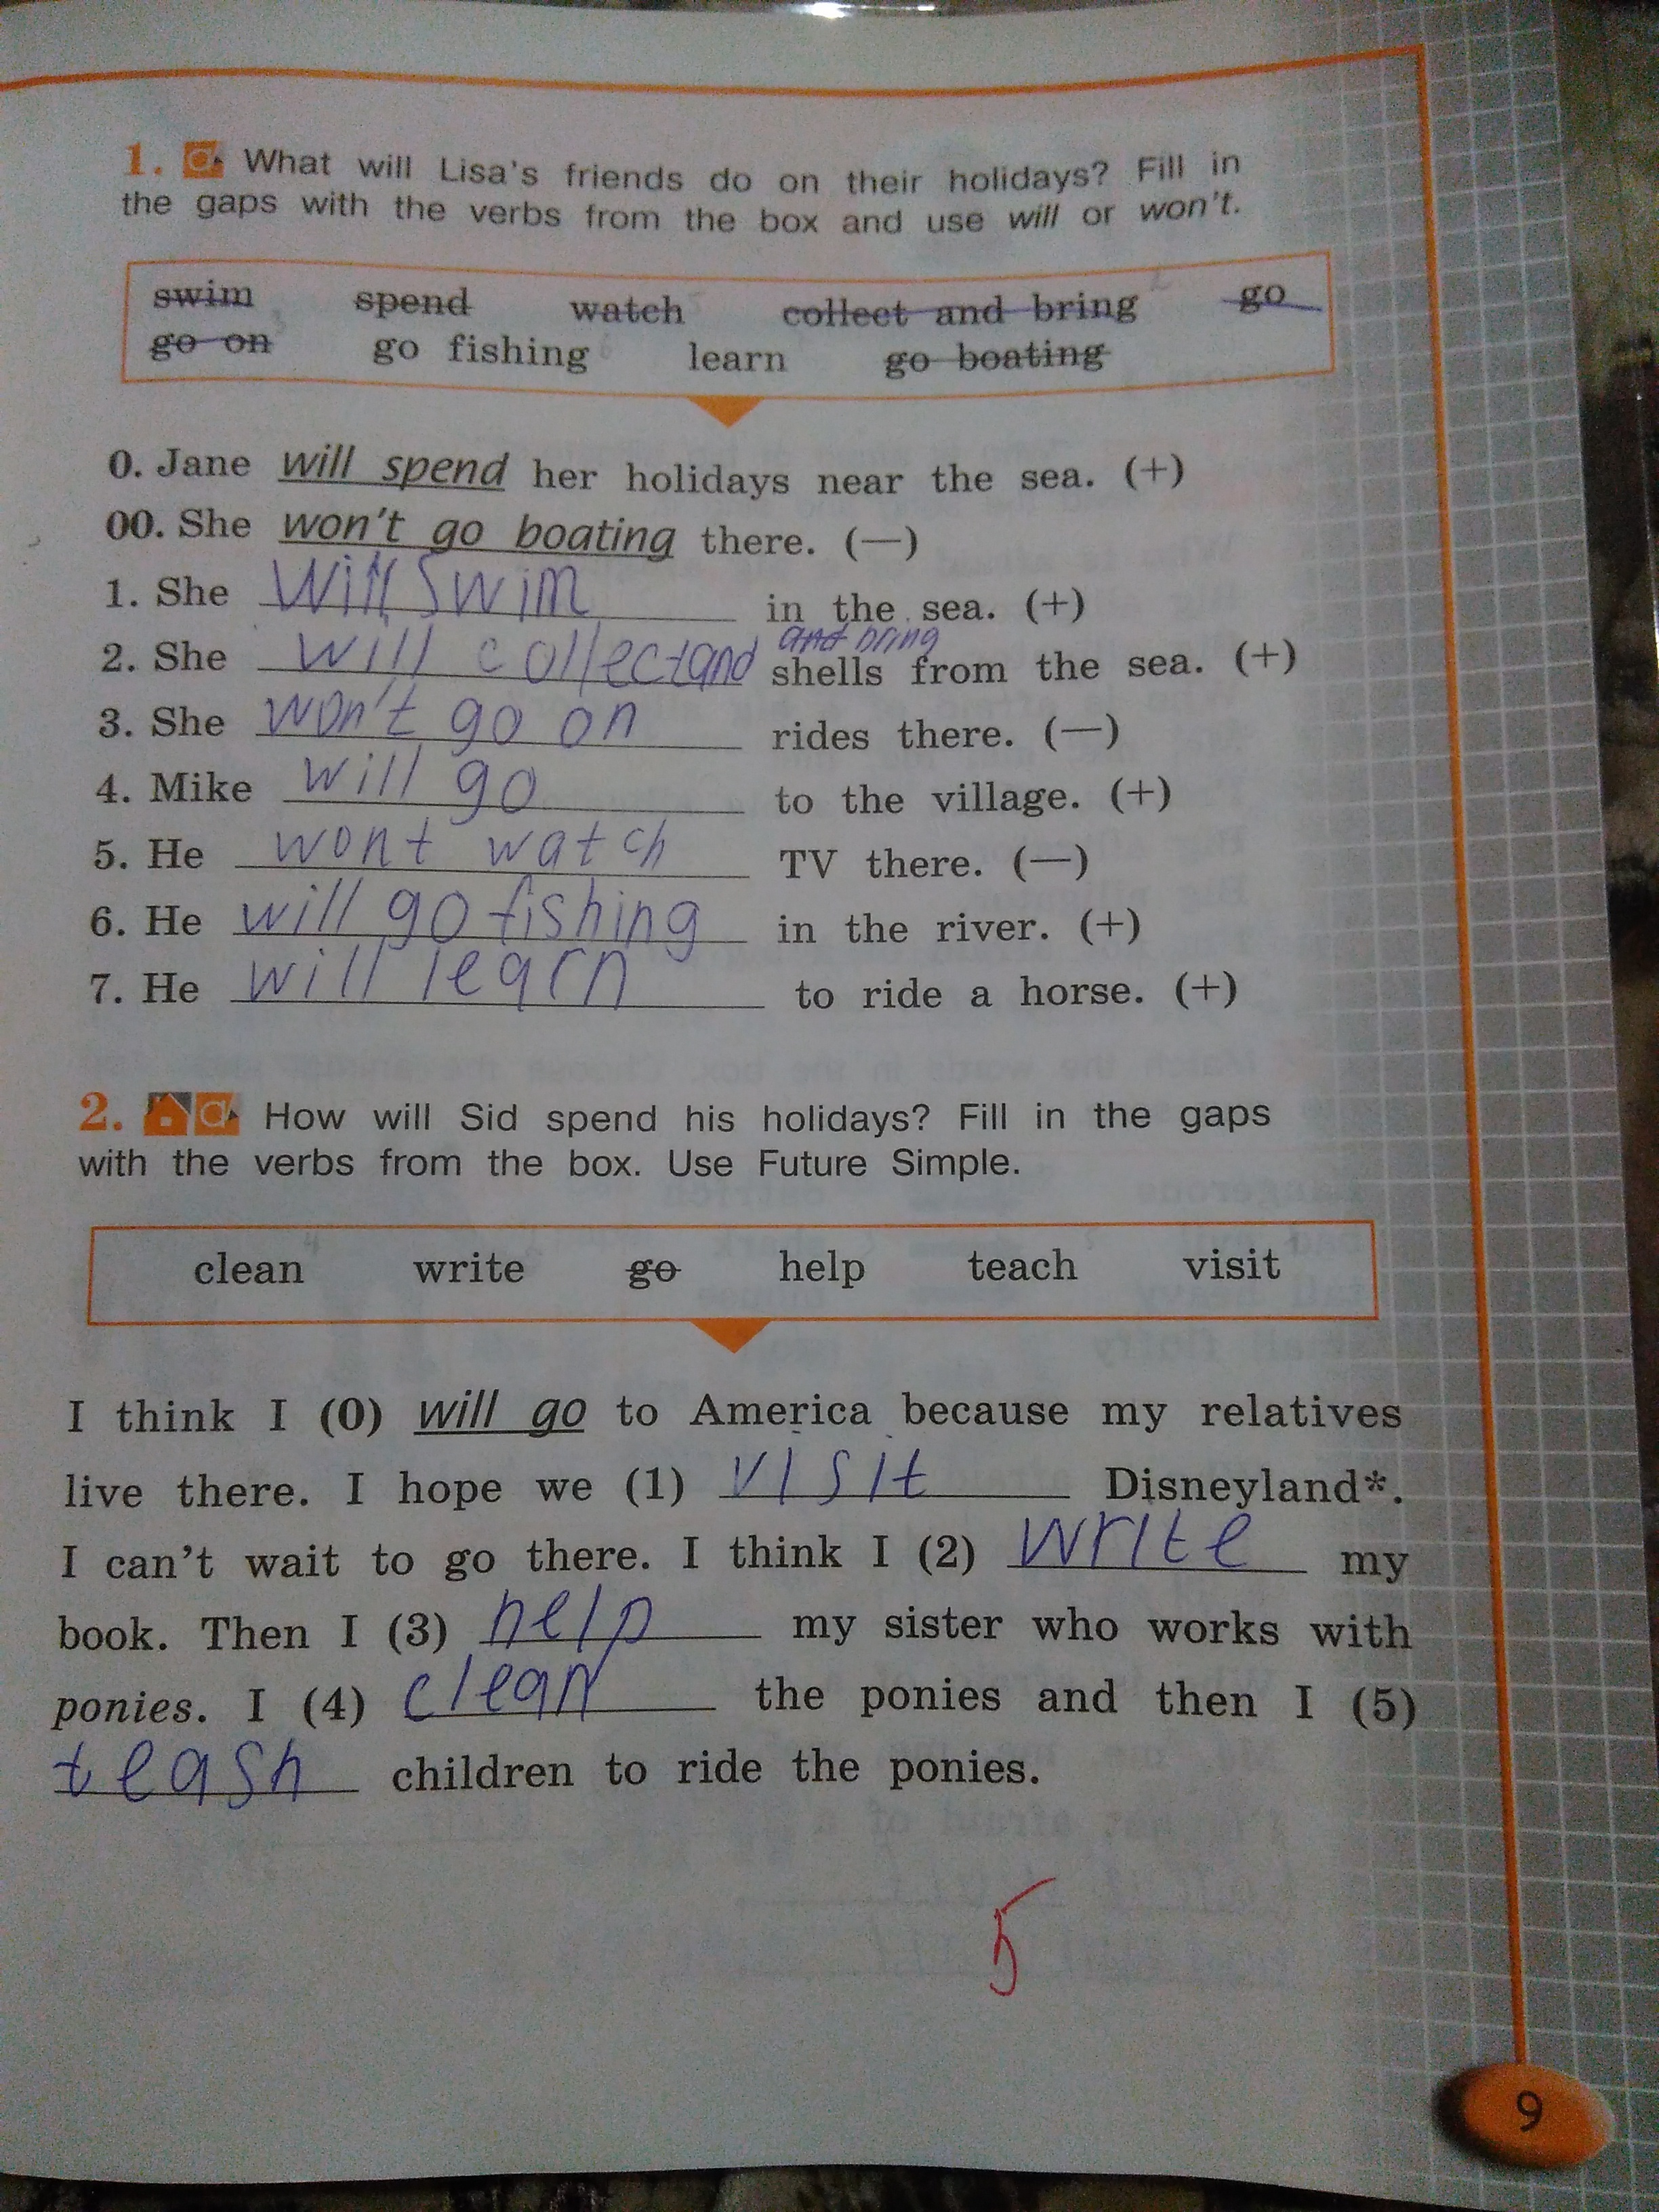 1. What will Lisa's friends do on their holidays? Fill in
the gaps with the verbs from the box and use will or won't.
swim spend watch collect and bring go
go on go fishing learn go boating
0. Jane will spend her holidays near the sea. (+)
00. She won't go boating there. (—)
1. She will swim in the sea. (+)
and bring
2. She will collect and shells from the sea. (+)
3. She won't go on rides there. (—)
4. Mike will go to the village. (+)
5. He wont watch TV there. (—)
6. He will go fishing in the river. (+)
7. He will learn to ride a horse. (+)
2. How will Sid spend his holidays? Fill in the gaps
with the verbs from the box. Use Future Simple.
clean write go help teach visit
I think I (0) will go to America because my relatives
live there. I hope we (1) visit Disneyland*.
I can't wait to go there. I think I (2) write my
book. Then I (3) help my sister who works with
ponies. I (4) clean the ponies and then I (5)
teash children to ride the ponies.
5
9